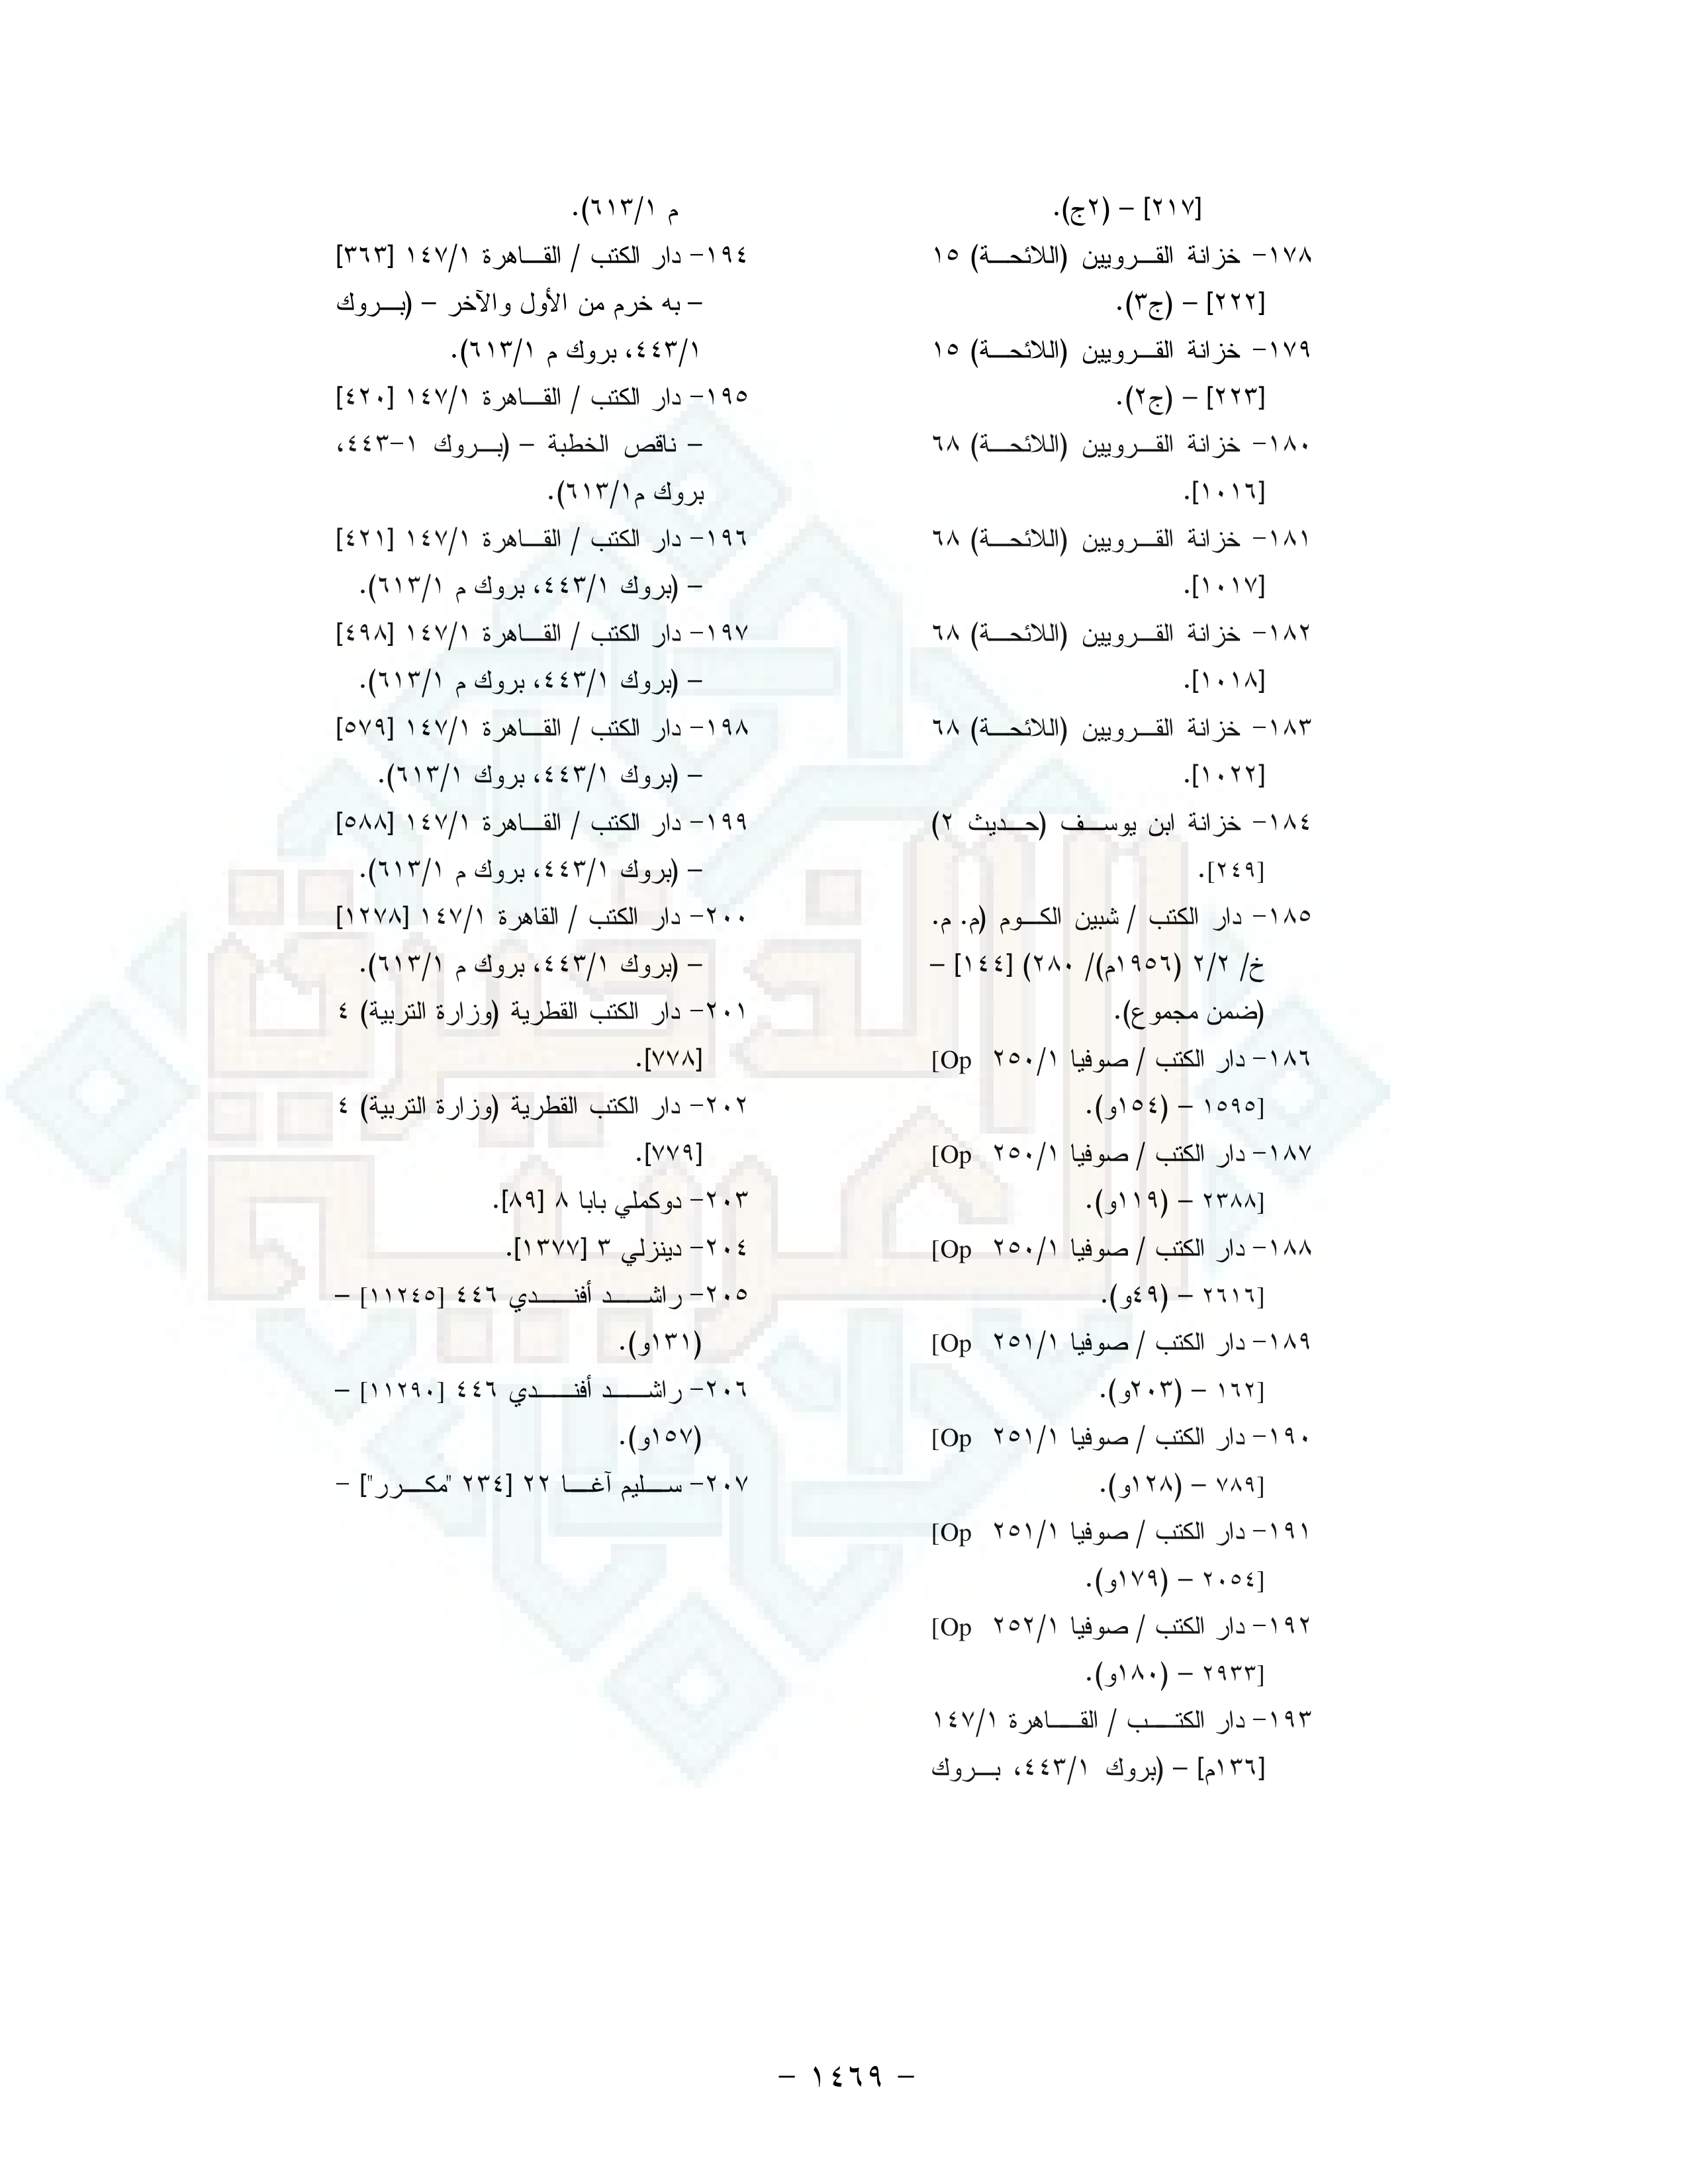 [٢١٧] – (٢ج).
١٧٨- خزانة القـــرويين (اللائحـــة) ١٥
[٢٢٢] – (ج٣).
١٧٩- خزانة القـــرويين (اللائحـــة) ١٥
[٢٢٣] – (ج٢).
١٨٠- خزانة القـــرويين (اللائحـــة) ٦٨
[١٠١٦].
١٨١- خزانة القـــرويين (اللائحـــة) ٦٨
[١٠١٧].
١٨٢- خزانة القـــرويين (اللائحـــة) ٦٨
[١٠١٨].
١٨٣- خزانة القـــرويين (اللائحـــة) ٦٨
[١٠٢٢].
١٨٤- خزانة ابن يوســـف (حـــديث ٢)
[٢٤٩].
١٨٥- دار الكتب / شبين الكـــوم (م. م.
خ/ ٢/٢ (١٩٥٦م)/ ٢٨٠) [١٤٤] –
(ضمن مجموع).
١٨٦- دار الكتب / صوفيا ٢٥٠/١ [Op
١٥٩٥] – (١٥٤و).
١٨٧- دار الكتب / صوفيا ٢٥٠/١ [Op
٢٣٨٨] – (١١٩و).
١٨٨- دار الكتب / صوفيا ٢٥٠/١ [Op
٢٦١٦] – (٤٩و).
١٨٩- دار الكتب / صوفيا ٢٥١/١ [Op
١٦٢] – (٢٠٣و).
١٩٠- دار الكتب / صوفيا ٢٥١/١ [Op
٧٨٩] – (١٢٨و).
١٩١- دار الكتب / صوفيا ٢٥١/١ [Op
٢٠٥٤] – (١٧٩و).
١٩٢- دار الكتب / صوفيا ٢٥٢/١ [Op
٢٩٣٣] – (١٨٠و).
١٩٣- دار الكتـــب / القـــاهرة ١٤٧/١
[١٣٦م] – (بروك ٤٤٣/١، بـــروك
م ٦١٣/١).
١٩٤- دار الكتب / القـــاهرة ١٤٧/١ [٣٦٣]
– به خرم من الأول والآخر – (بـــروك
٤٤٣/١، بروك م ٦١٣/١).
١٩٥- دار الكتب / القـــاهرة ١٤٧/١ [٤٢٠]
– ناقص الخطبة – (بـــروك ١-٤٤٣،
بروك م٦١٣/١).
١٩٦- دار الكتب / القـــاهرة ١٤٧/١ [٤٢١]
– (بروك ٤٤٣/١، بروك م ٦١٣/١).
١٩٧- دار الكتب / القـــاهرة ١٤٧/١ [٤٩٨]
– (بروك ٤٤٣/١، بروك م ٦١٣/١).
١٩٨- دار الكتب / القـــاهرة ١٤٧/١ [٥٧٩]
– (بروك ٤٤٣/١، بروك ٦١٣/١).
١٩٩- دار الكتب / القـــاهرة ١٤٧/١ [٥٨٨]
– (بروك ٤٤٣/١، بروك م ٦١٣/١).
٢٠٠- دار الكتب / القاهرة ١٤٧/١ [١٢٧٨]
– (بروك ٤٤٣/١، بروك م ٦١٣/١).
٢٠١- دار الكتب القطرية (وزارة التربية) ٤
[٧٧٨].
٢٠٢- دار الكتب القطرية (وزارة التربية) ٤
[٧٧٩].
٢٠٣- دوكملي بابا ٨ [٨٩].
٢٠٤- دينزلي ٣ [١٣٧٧].
٢٠٥- راشـــد أفنـــدي ٤٤٦ [١١٢٤٥] –
(١٣١و).
٢٠٦- راشـــد أفنـــدي ٤٤٦ [١١٢٩٠] –
(١٥٧و).
٢٠٧- ســـليم آغـــا ٢٢ [٢٣٤ "مكـــرر"] –
الذخيرة
العربية
- ١٤٦٩ -